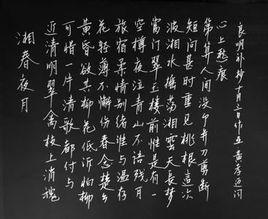 湘春夜月
近清明翠禽枝上消魂
可惜一片清歌都付与
黄昏欲共柳花低诉怕柳
花轻薄不解伤春念楚乡
旅宿柔情别绪谁与温存
空樽夜泣青山不语残月
當门翠玉楼前惟是有一
波湘水摇荡湘云天长梦
短问甚时重见桃根這次
第算人间没个并刀剪断
心上愁痕
良明 抄十月三日作 黄孝迈词